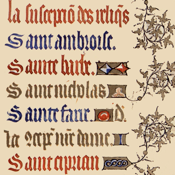 la susception des reliq̄s
Saint ambroise.
Sainte barbe.
Saint nicholas
Sainte fare. d.
la ɔcept̄ n̄r̄e dame.
Saint ciprian